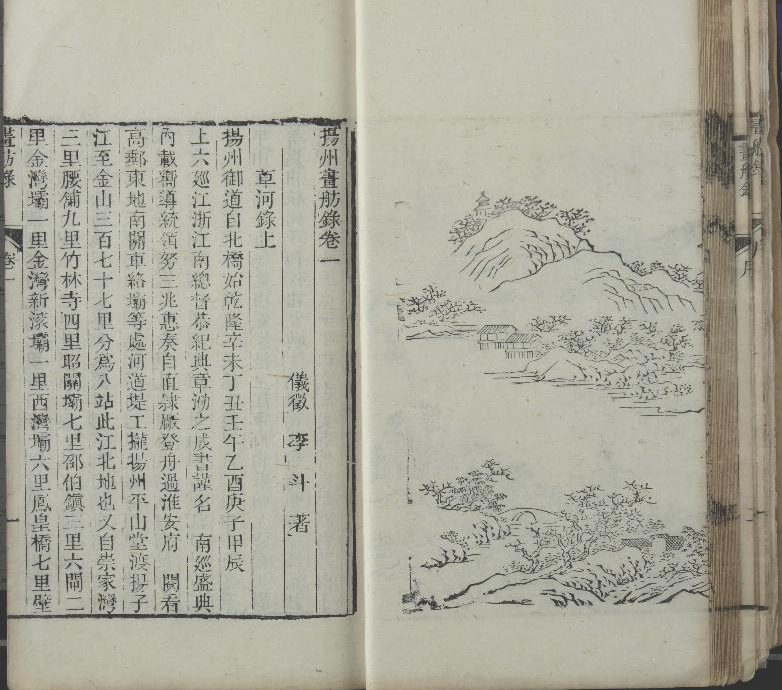 揚州畫舫錄卷一
儀徵 李斗 著
草河錄上
揚州御道自北橋始乾隆辛未丁丑壬午乙酉庚子甲辰
上六巡江浙江南總督恭紀典章泐之成書謹名 南巡盛典
內載嚮導統領努三兆惠奏自直隸廠登舟過淮安府 閱看
高郵東地南關車絡壩等處河道堤工攏揚州平山堂渡揚子
江至金山三百七十七里分為八站此江北地也又自崇家灣
三里腰舖九里竹林寺四里昭關壩七里邵伯鎮三里六閘二
里金灣壩一里金灣新滚壩一里西灣壩六里鳳皇橋七里壁
畫舫錄
卷一
一